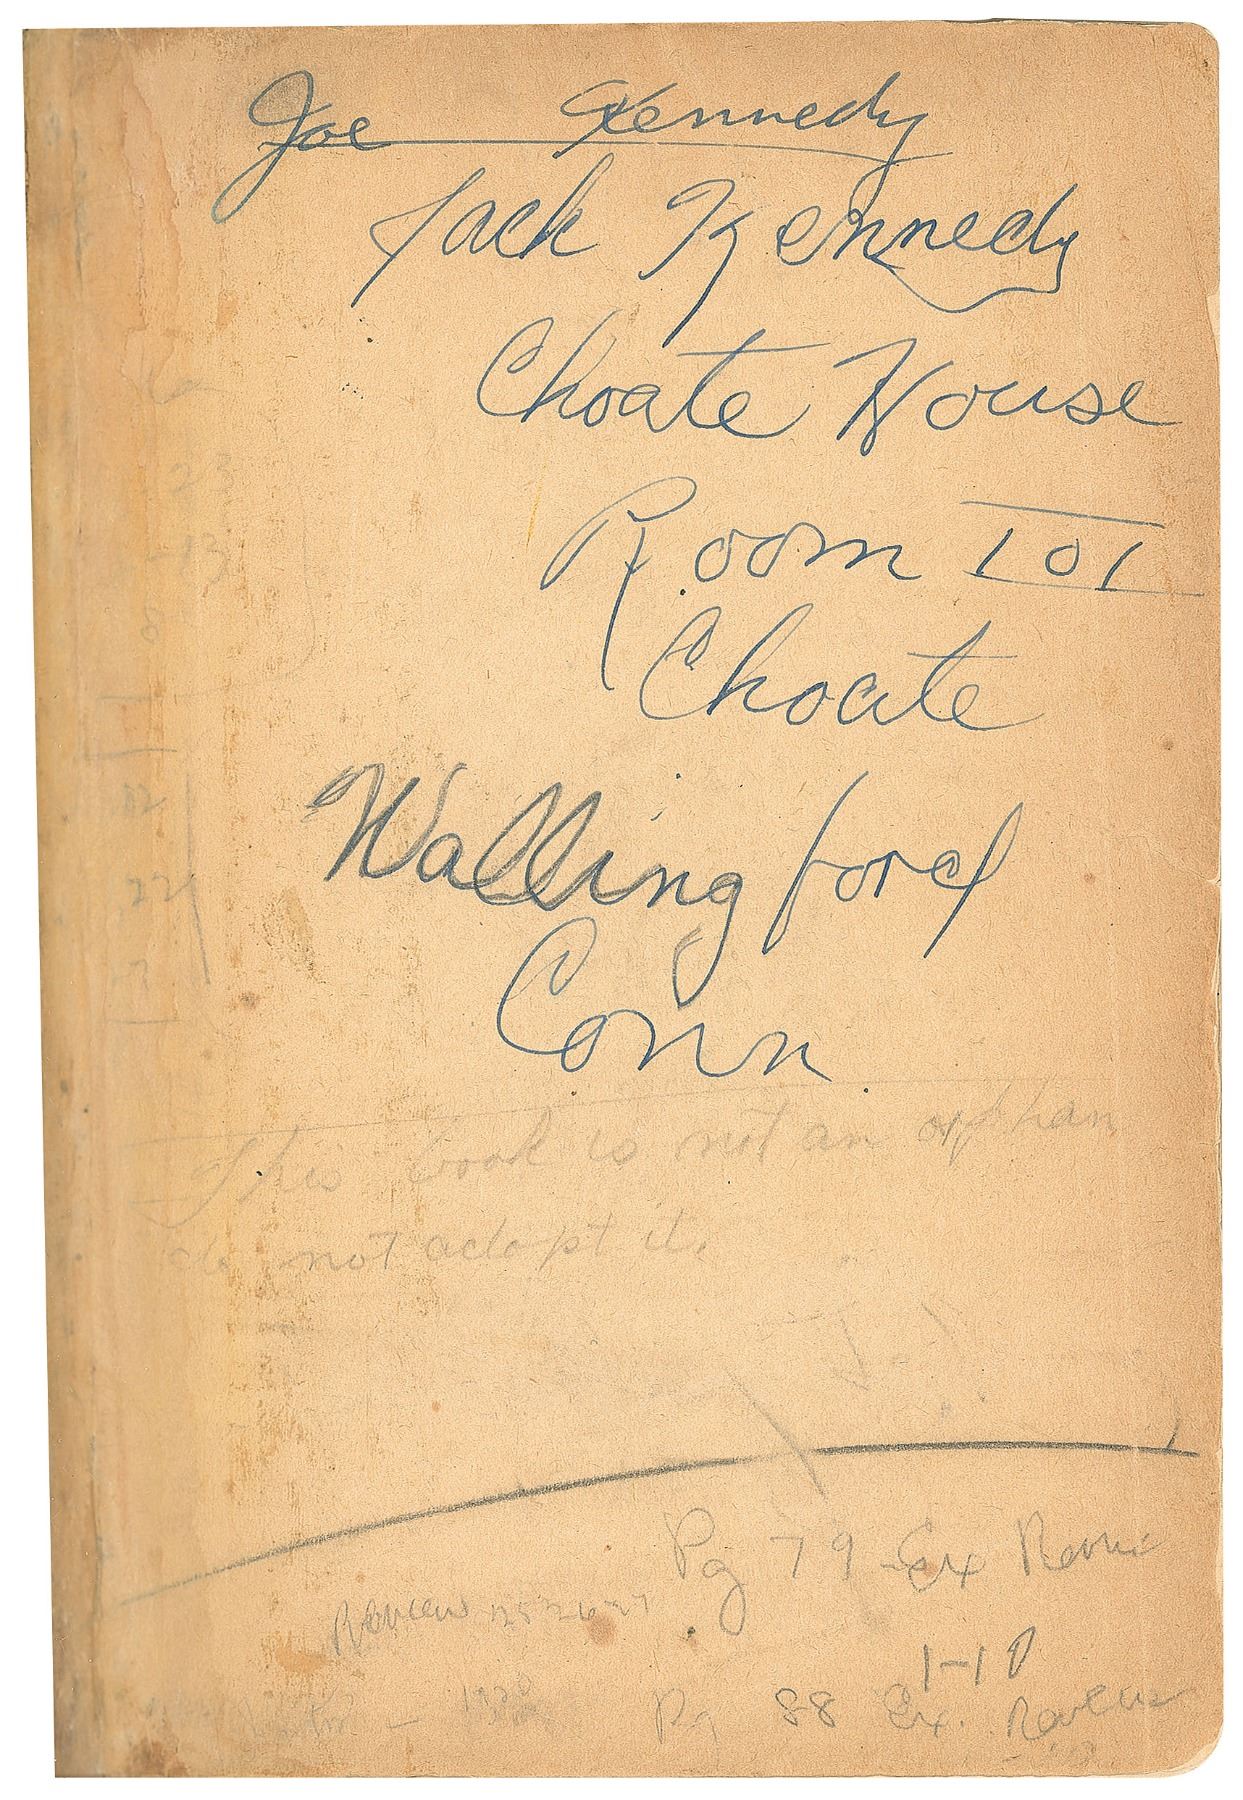 Joe Kennedy
Jack Kennedy
Choate House
Room 101
Choate
Wallingford
Conn
23
13
8
12
22
7
This book is not an orphan
do not adopt it.
Pg 79 Ex
Review 25 26-27
1-10
Pg 88 Ex. Review